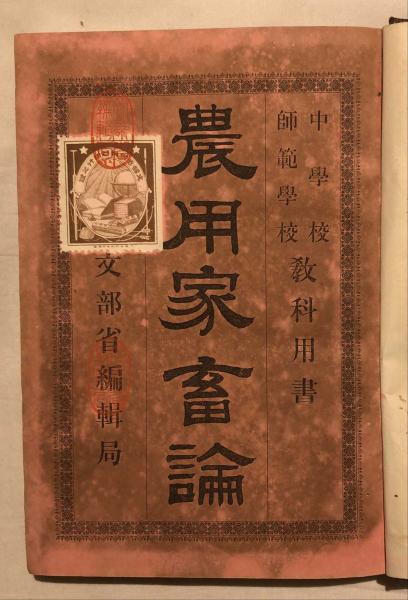 中學校
師範學校
敎科用書
農用家畜論
文部省編輯局